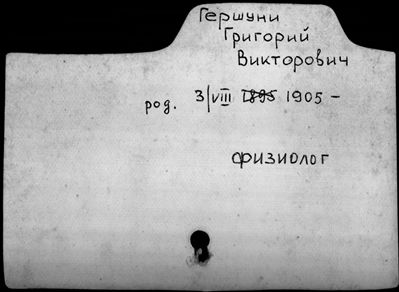 Гершуни
Григорий
Викторович
род. 3/VIII 1895 1905 –
физиолог